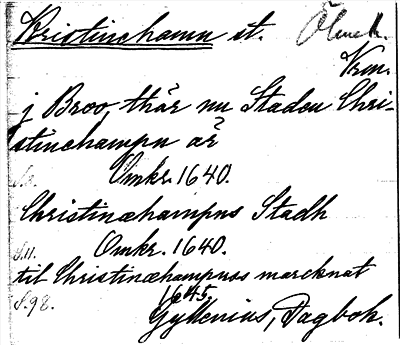 Kristinehamn st. Ölme h.
Vrm.
j Broo, thär nu Staden Chri-
stinehampn är
Omkr. 1640.
Christinæhampns Stadh
S. 11. Omkr. 1640.
til Christinæhampnss marcknat
S. 98. 1645.
Gyllenius, Dagbok.